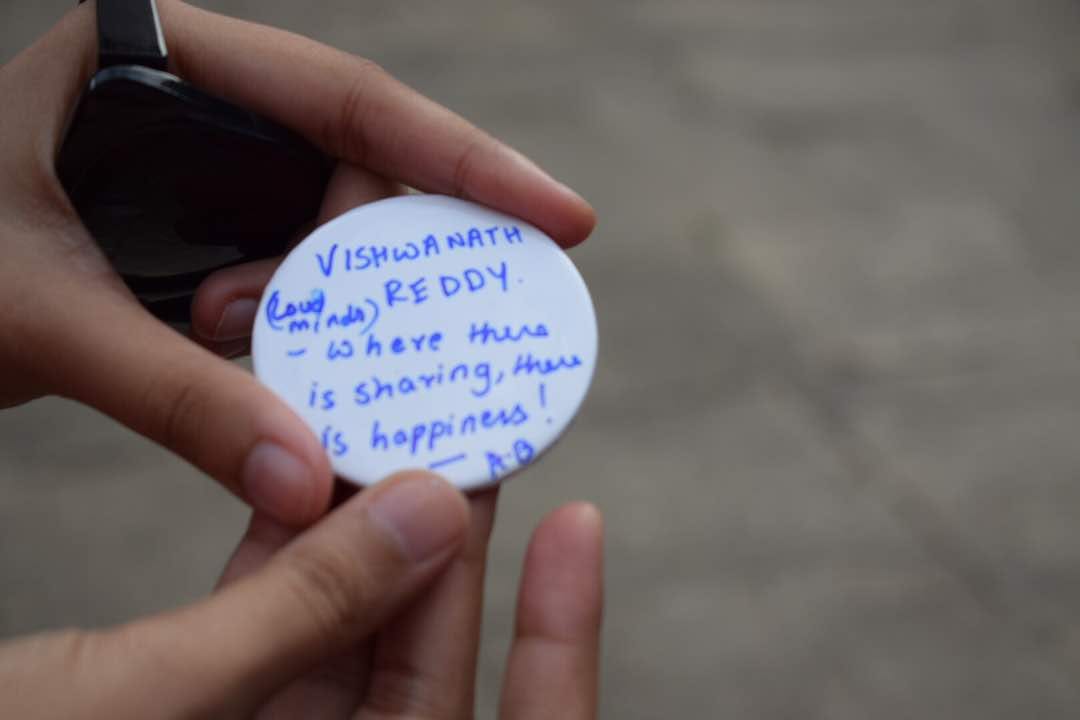 VISHWANATH
REDDY.
(Loud
minds)
- where there
is sharing, there
is happiness!
— A.B